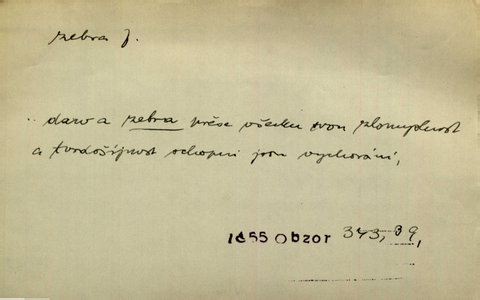 zebra f.
.. daw a zebra přése všecku svou zlomyslnost
a tvrdošíjnost schopni jsou vychování,
1855 Obzor 343, 39,